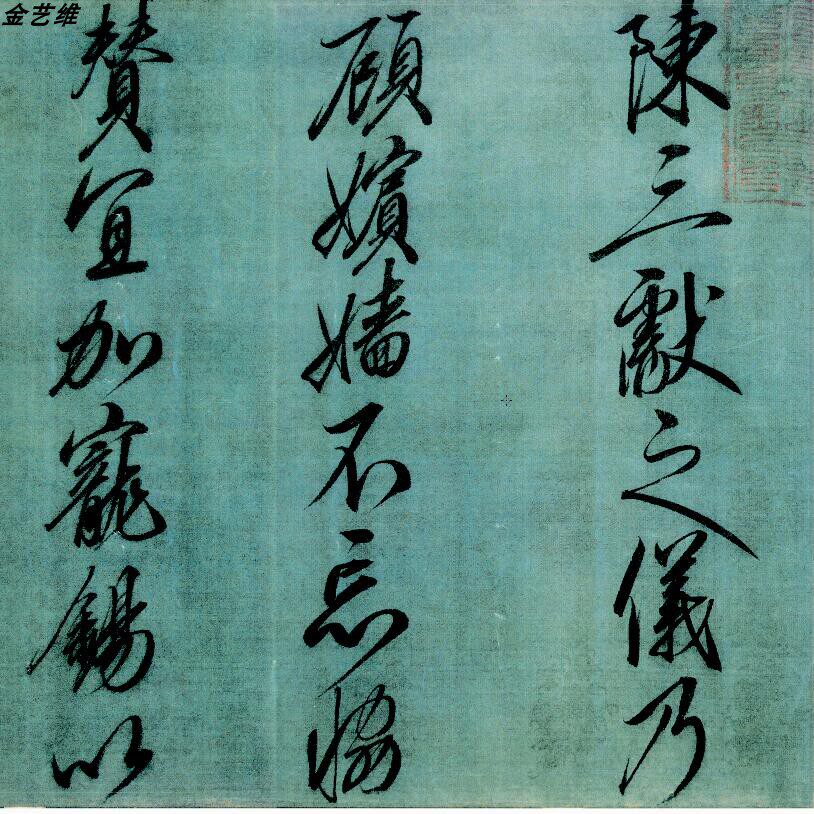 金艺维
陳三獻之儀乃
顧嬪嬙不忘恊
賛宜加寵錫以